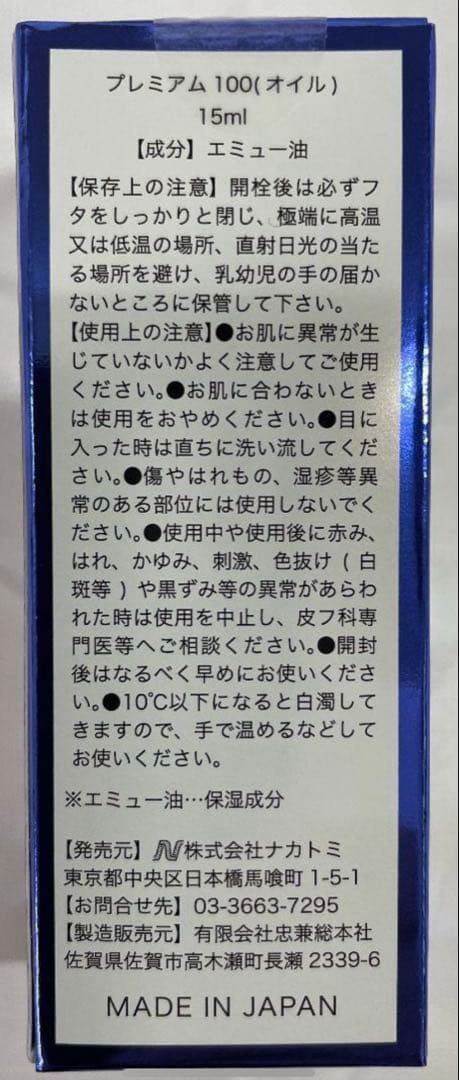 プレミアム 100(オイル)
15ml
【成分】エミュー油
【保存上の注意】開栓後は必ずフ
タをしっかりと閉じ、極端に高温
又は低温の場所、直射日光の当た
る場所を避け、乳幼児の手の届か
ないところに保管して下さい。
【使用上の注意】●お肌に異常が生
じていないかよく注意してご使用
ください。●お肌に合わないとき
は使用をおやめください。●目に
入った時は直ちに洗い流してくだ
さい。●傷やはれもの、湿疹等異
常のある部位には使用しないでく
ださい。●使用中や使用後に赤み、
はれ、かゆみ、刺激、色抜け ( 白
斑等 ) や黒ずみ等の異常があらわ
れた時は使用を中止し、皮フ科専
門医等へご相談ください。●開封
後はなるべく早めにお使いくださ
い。●10℃以下になると白濁して
きますので、手で温めるなどして
お使いください。
※エミュー油…保湿成分
【発売元】N株式会社ナカトミ
東京都中央区日本橋馬喰町 1-5-1
【お問合せ先】03-3663-7295
【製造販売元】有限会社忠兼総本社
佐賀県佐賀市高木瀬町長瀬 2339-6
MADE IN JAPAN